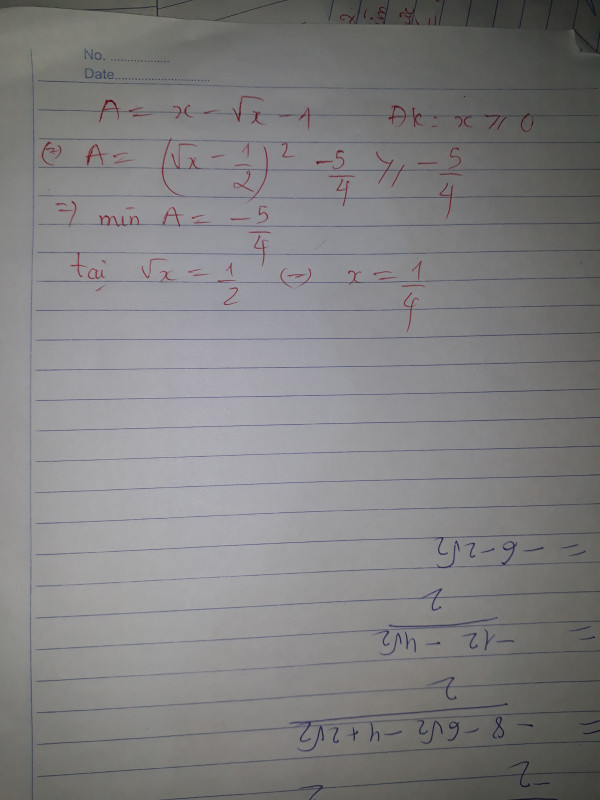 No. ................
Date............................
A = x - √x - 1 ĐK: x ⩾ 0
(=) A = (√x - 1/2)² - 5/4 ⩾ - 5/4
=) min A = - 5/4
tại √x = 1/2 (=) x = 1/4
-2
= -8 - 6√2 - 4 + 2√2 / 2
= -12 - 4√2 / 2
= -6 - 2√2